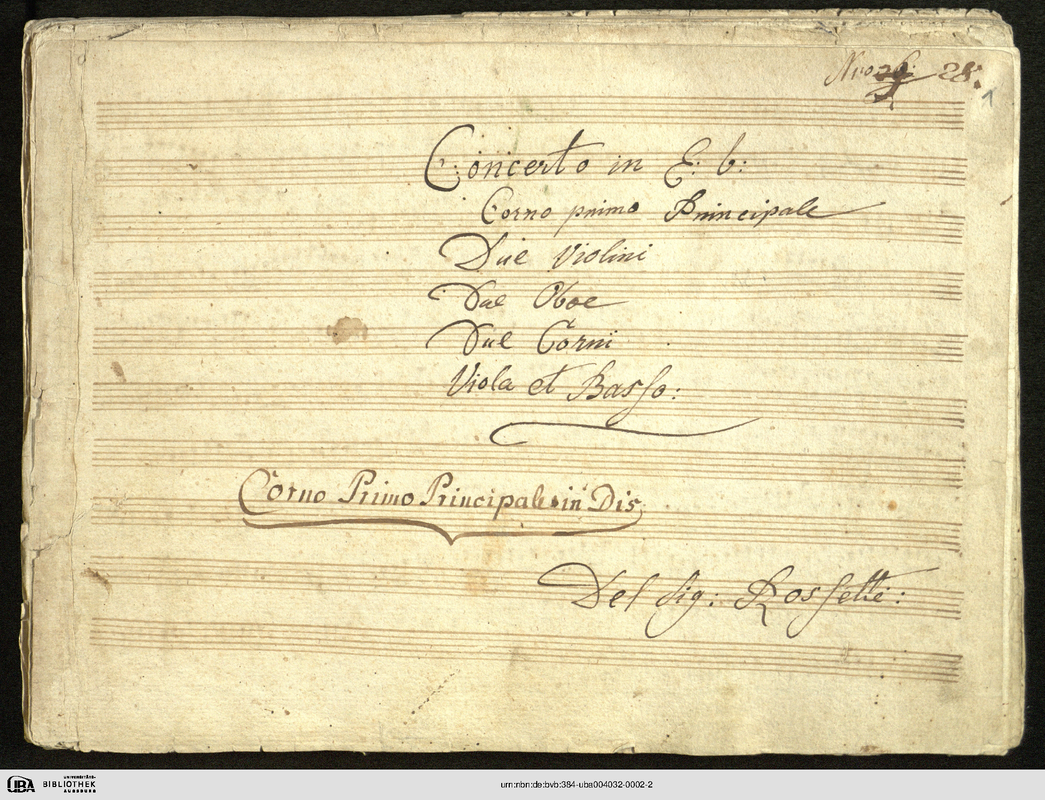 Nro 28.
1
Concerto in E: b:
Corno primo Principale
Due Violini
Due Oboe
Due Corni
Viola et Basso:
Corno Primo Principale in Dis
Del Sig: Rossetti:
UBA UNIVERSITÄTS-
BIBLIOTHEK
AUGSBURG
urn:nbn:de:bvb:384-uba004032-0002-2